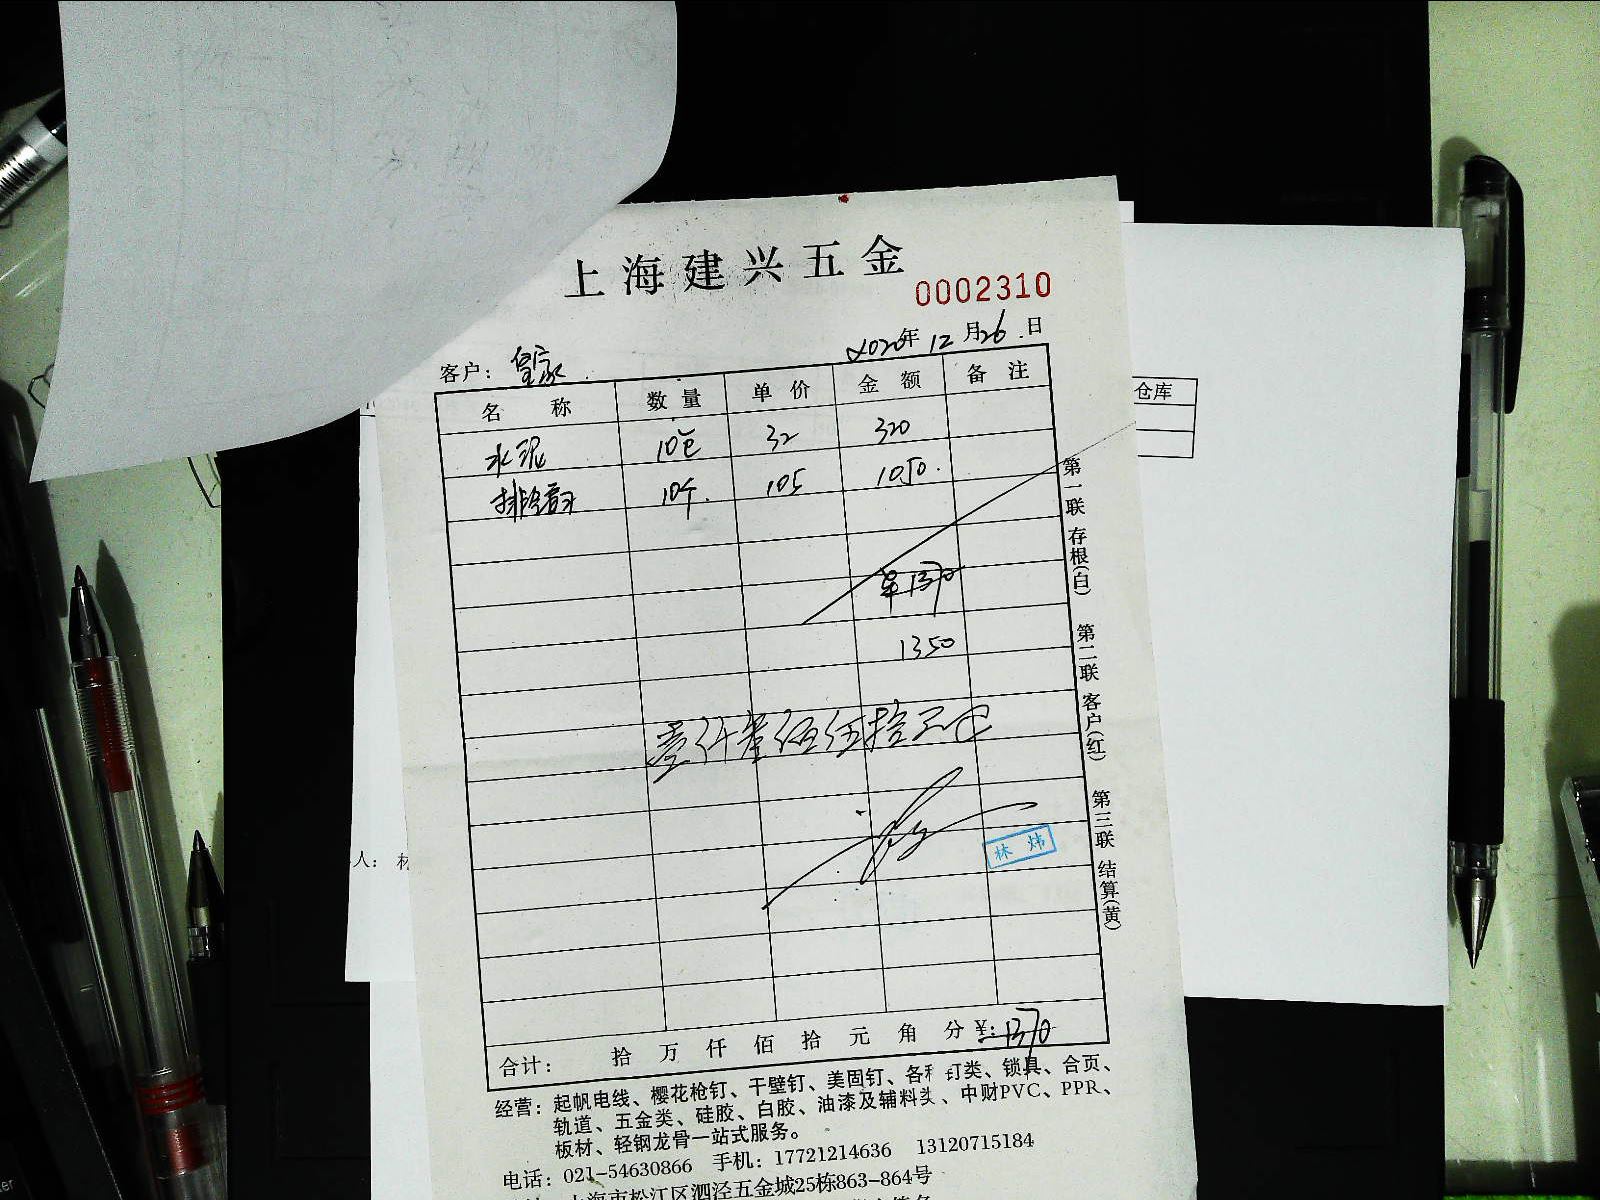 上海建兴五金
0002310
2020年12月26日
客户：皇家
名称 数量 单价 金额 备注
仓库
水泥 10包 32 320
10个 105 1050
第一联 存根(白) 第二联 客户(红) 第三联 结算(黄)
1370
1350
壹仟叁佰伍拾元
人：林
林炜
合计： 拾万仟佰拾元角分¥:1370
经营：起帆电线、樱花枪钉、干壁钉、美固钉、各种钉类、锁具、合页、
轨道、五金类、硅胶、白胶、油漆及辅料头、中财PVC、PPR、
板材、轻钢龙骨一站式服务。
电话：021-54630866 手机：17721214636 13120715184
上海市松江区泗泾五金城25栋863-864号